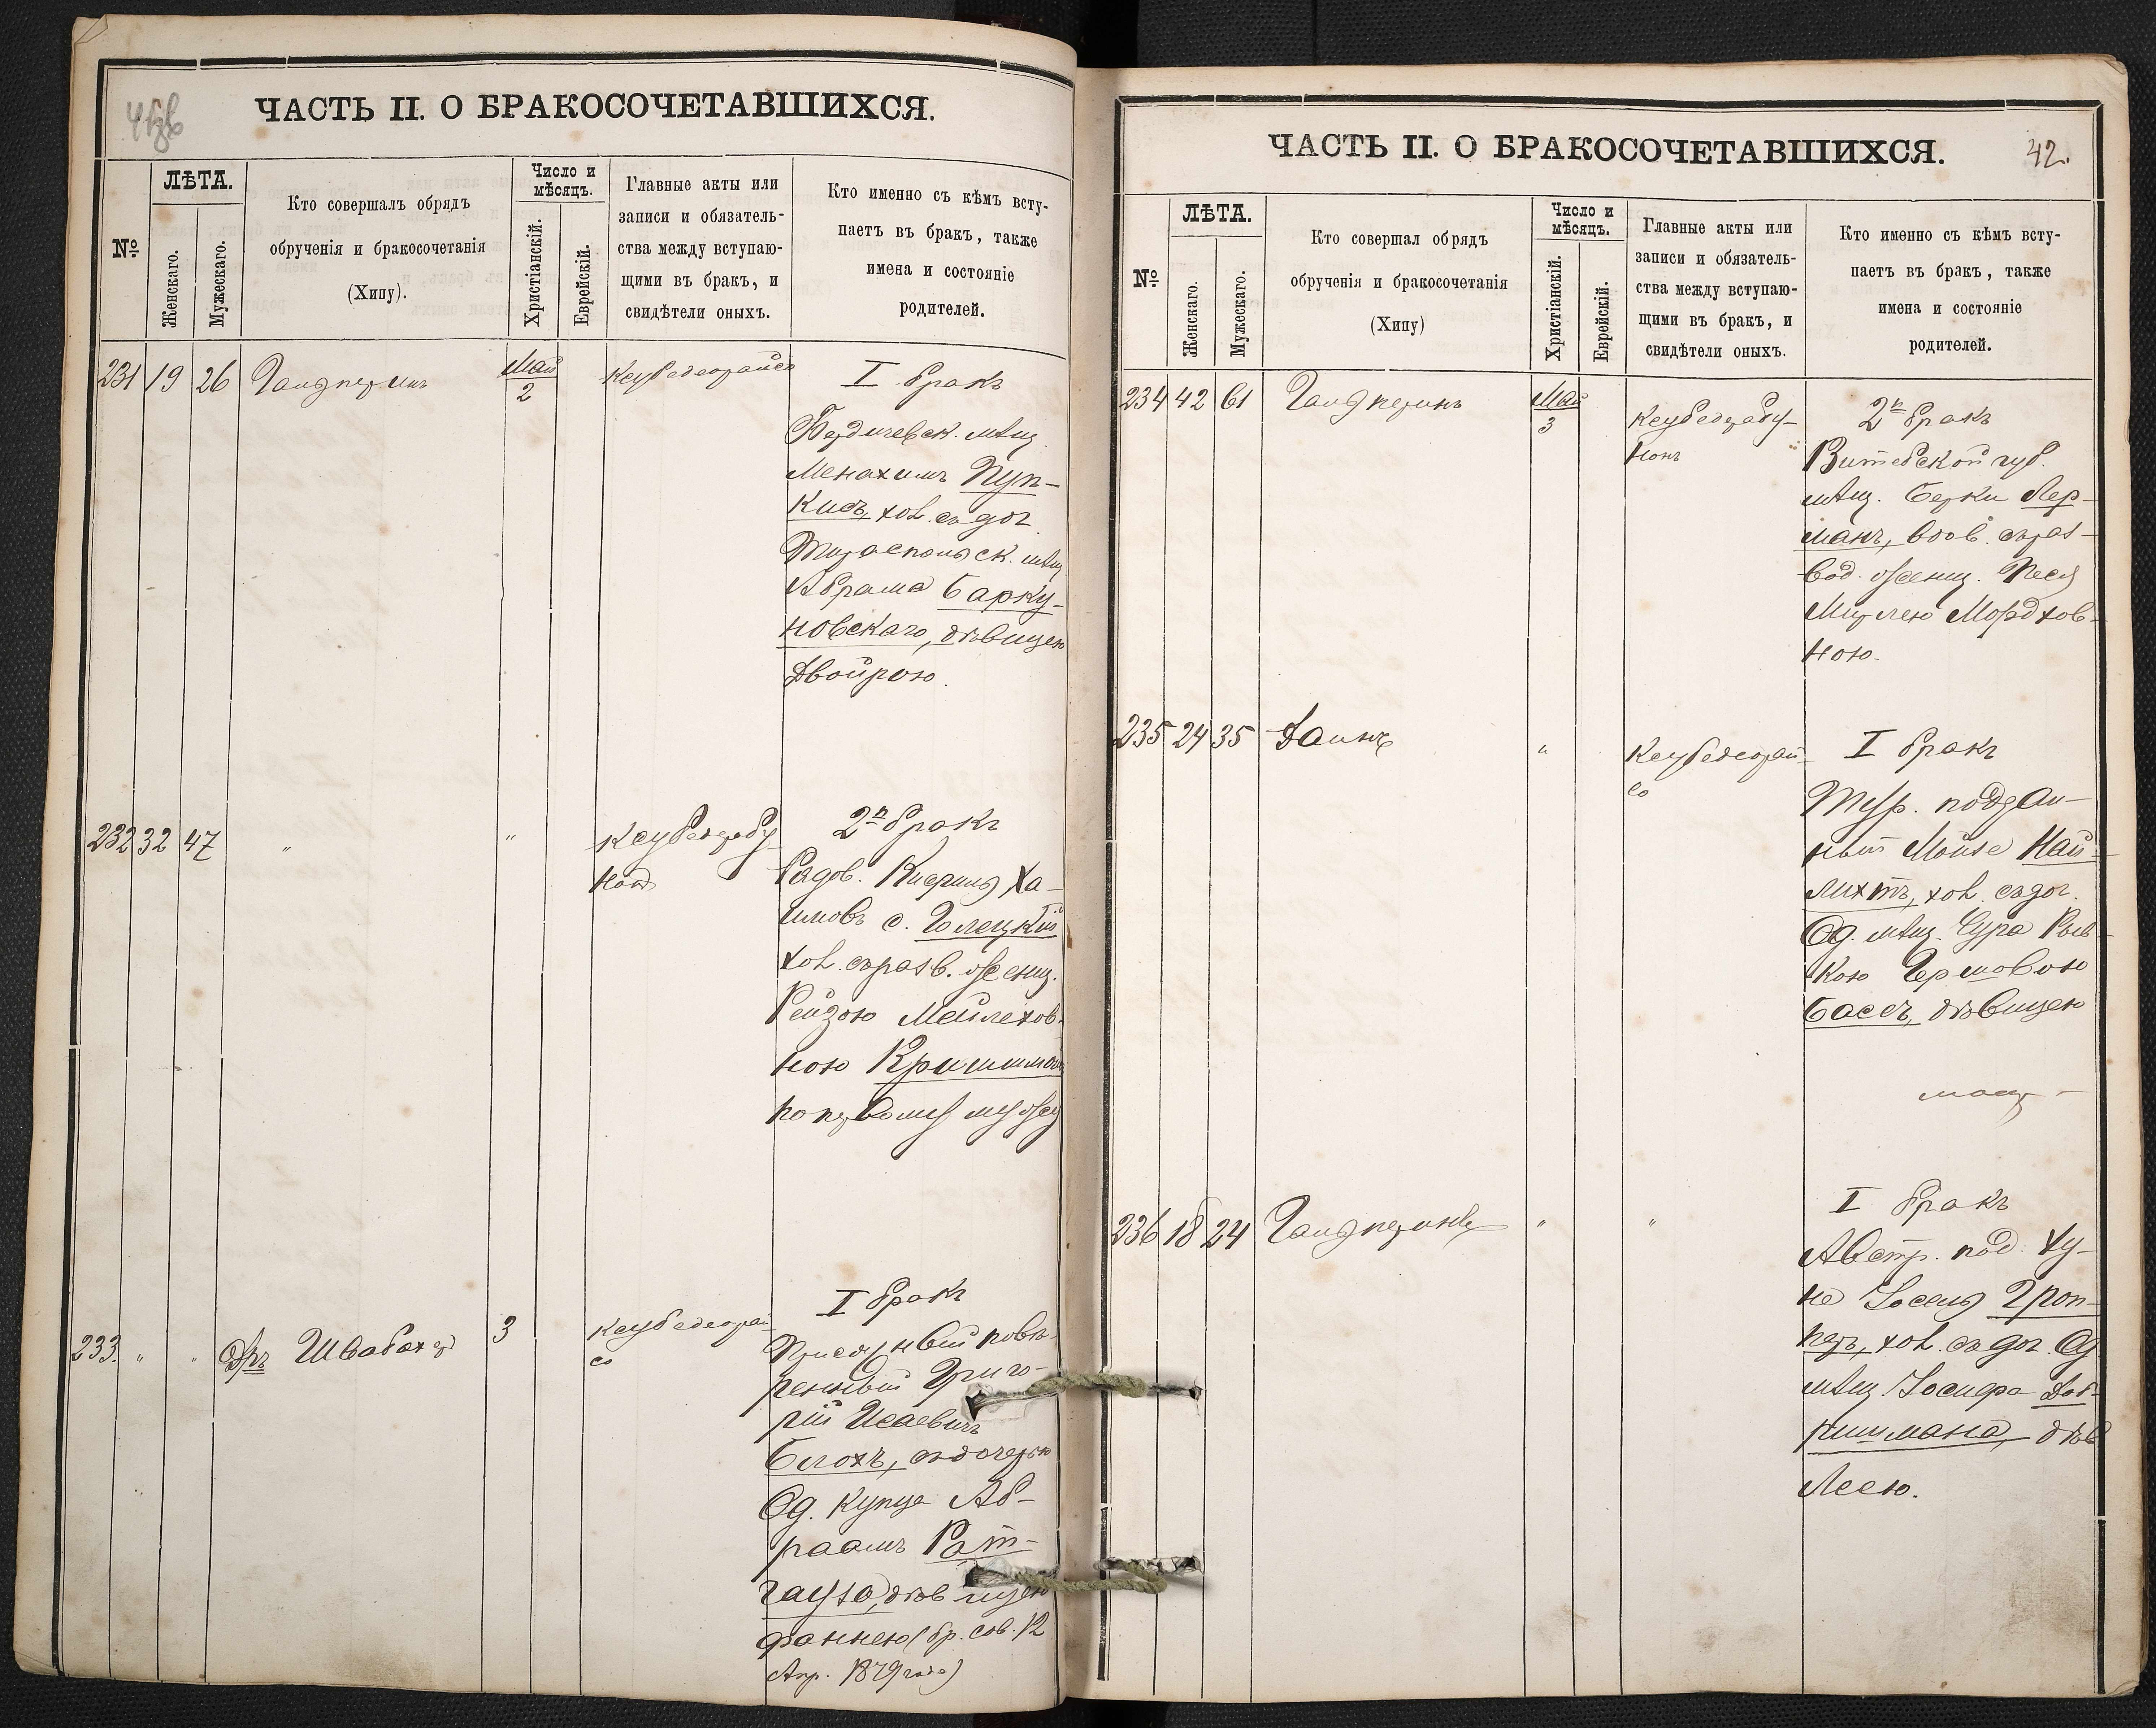 ЧАСТЬ II. О БРАКОСОЧЕТАВШИХСЯ.
№
ЛѢТА.
Женскаго.
Мужескаго.
Кто совершалъ обрядъ
обрученія и бракосочетанія
(Хипу).
Число и
мѣсяцъ.
Христіанскій.
Еврейскій.
Главные акты или
записи и обязатель-
ства между вступаю-
щими въ бракъ, и
свидѣтели оныхъ.
Кто именно съ кѣмъ всту-
паетъ въ бракъ, также
имена и состояніе
родителей.
231 19 26 Галперинъ Май 2 Кеубедеорайсо
I бракъ
Бердичевск. мѣщ.
Менахимъ Пуп-
кисъ, хол. съ доч.
Тираспольск. мѣщ.
Абрама Барку-
новскаго, дѣвицею
Двойрою.
232 32 47 " "
Кеубедрабу
нонъ
2й бракъ
Рядов. Кисриль Ха-
имовъ с.
хол. съ разв. женщ.
Рейзою Мейлехов-
ною
по первому мужу
233. " " Др Швабахер 3
Кеубедеорай
со
I бракъ
Присяжный повѣ-
ренный Григо-
рій Исаевичъ
Блохъ, съ дочерью
Од. купца Аб-
раамъ Рот-
гауза, дѣвицею
Фаннею (бр. сов. 12
Апр. 1879 года)
ЧАСТЬ II. О БРАКОСОЧЕТАВШИХСЯ.
42.
№
ЛѢТА.
Женскаго.
Мужескаго.
Кто совершал обрядъ
обрученія и бракосочетанія
(Хипу)
Число и
мѣсяцъ.
Христіанскій.
Еврейскій.
Главные акты или
записи и обязатель-
ства между вступаю-
щими въ бракъ, и
свидѣтели оныхъ.
Кто именно съ кѣмъ всту-
паетъ въ бракъ, также
имена и состояніе
родителей.
234 42 61 Галперинъ Май 3
Кеубедрабу-
нонъ
2й бракъ
Витебской губ.
мѣщ. Берки Лер-
манъ, вдов. съ раз-
вод. женщ. Песя
Мирлею Мордхов-
ною.
235 24 35 Даинъ "
Кеубедеорай-
со
I бракъ
Тур. поддан-
ный Мойзе Най-
лихтъ, хол. съ доч.
Од. мѣщ. Сура Рыв-
кою Гершовою
Бассъ, дѣвицею
236 18 24 Галперинъ " "
I бракъ
Австр. под. Ху-
не Іосель Гроп-
перъ, хол. съ доч. Од
мѣщ. Іосифа Доб-
ришмана, дѣв
Леею.